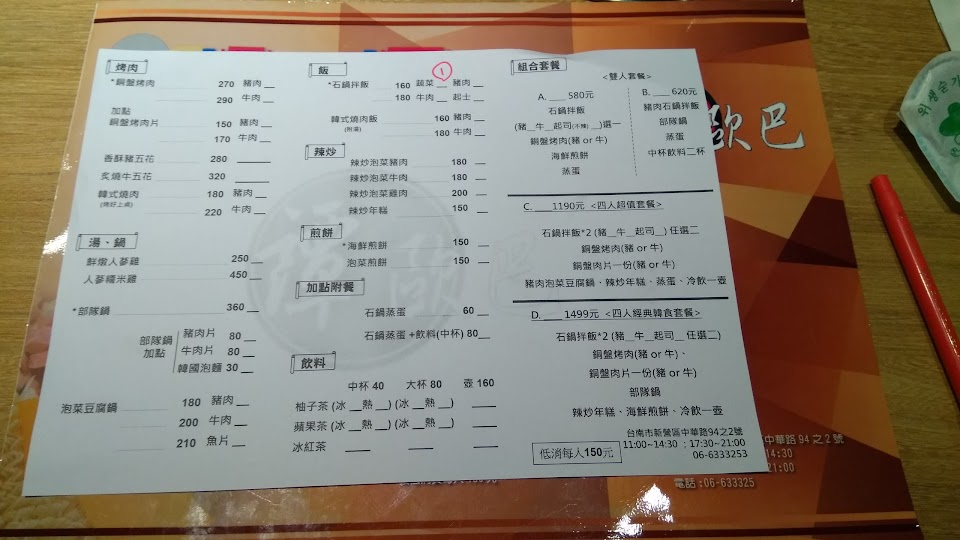 烤肉
*銅盤烤肉 270 豬肉__
290 牛肉__
加點
銅盤烤肉片 150 豬肉__
170 牛肉__
香酥豬五花 280 ____
炙燒牛五花 320 ____
韓式燒肉 180 豬肉__
(烤好上桌)
220 牛肉__
湯、鍋
鮮燉人蔘雞 250__
人蔘糯米雞 450__
*部隊鍋 360__
部隊鍋 豬肉片 80__
加點 牛肉片 80__
韓國泡麵 30__
泡菜豆腐鍋 180 豬肉__
200 牛肉__
210 魚片__
飯 1
*石鍋拌飯 160 蔬菜__ 豬肉__
180 牛肉__ 起士__
韓式燒肉飯 160 豬肉__
(附湯) 180 牛肉__
辣炒
辣炒泡菜豬肉 180 __
辣炒泡菜牛肉 180 __
辣炒泡菜雞肉 200 __
辣炒年糕 150 __
煎餅
*海鮮煎餅 150 __
泡菜煎餅 150 __
加點附餐
石鍋蒸蛋 60 __
石鍋蒸蛋+飲料(中杯) 80__
飲料
中杯 40 大杯 80 壺 160
柚子茶 (冰__熱__) (冰__熱__) ____
蘋果茶 (冰__熱__) (冰__熱__) ____
冰紅茶 ____ ____ ____
組合套餐
<雙人套餐>
A. ____ 580元
石鍋拌飯
(豬__牛__起司(不辣)__)選一
銅盤烤肉(豬 or 牛)
海鮮煎餅
蒸蛋
B. ____ 620元
豬肉石鍋拌飯
部隊鍋
蒸蛋
中杯飲料二杯
C. ____1190元 <四人超值套餐>
石鍋拌飯*2 (豬__牛__起司__) 任選二
銅盤烤肉(豬 or 牛)
銅盤肉片一份(豬 or 牛)
豬肉泡菜豆腐鍋、辣炒年糕、蒸蛋、冷飲一壺
D. ____1499元 <四人經典韓食套餐>
石鍋拌飯*2 (豬__牛__起司__ 任選二)
銅盤烤肉(豬 or 牛)、
銅盤肉片一份(豬 or 牛)
部隊鍋
辣炒年糕、海鮮煎餅、冷飲一壺
低消每人150元
台南市新營區中華路94之2號
11:00~14:30 ; 17:30~21:00
06-6333253
歐巴
中華路 94 之 2 號
14:30
21:00
電話:06-633325
위생숟가